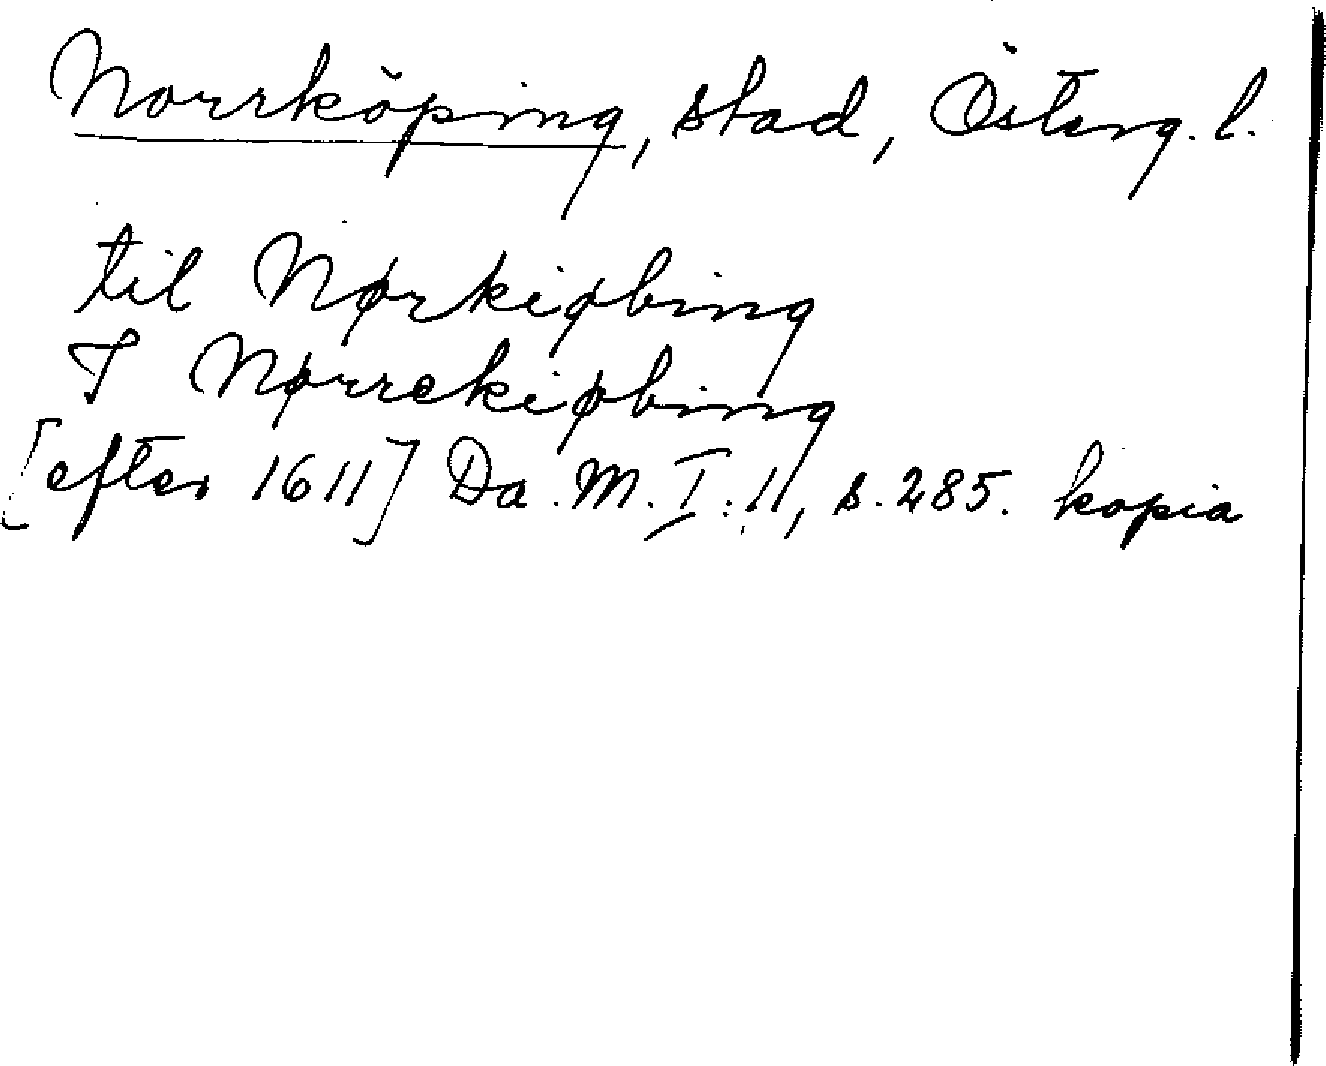 Norrköping, stad, Österg. l.
til Nørkiøbing
I Nørrekiøbing
[efter 1611] Da. M. I:11, s. 285. kopia